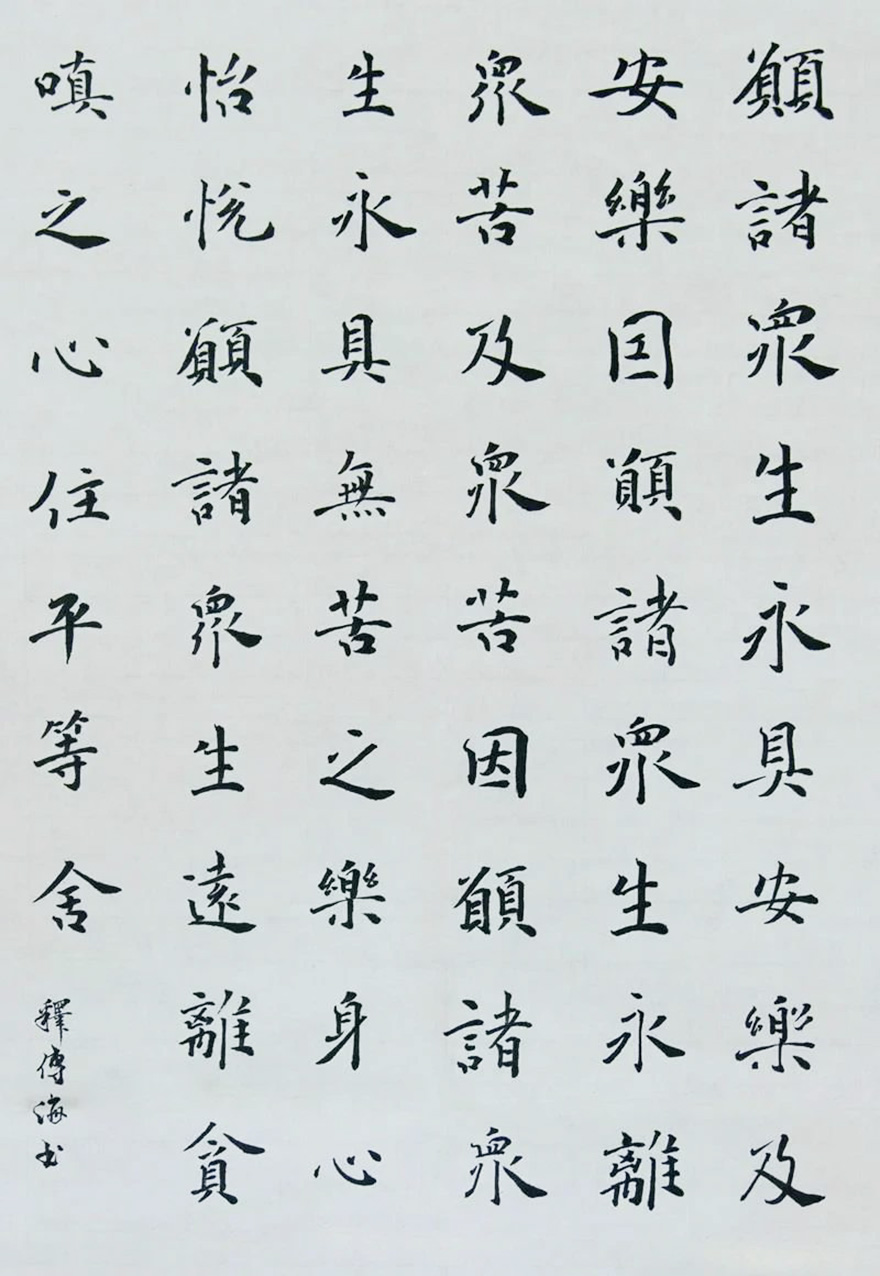 願諸眾生永具安樂及
安樂因願諸眾生永離
眾苦及眾苦因願諸眾
生永具無苦之樂身心
怡悅願諸眾生遠離貪
嗔之心住平等舍
釋傳海书